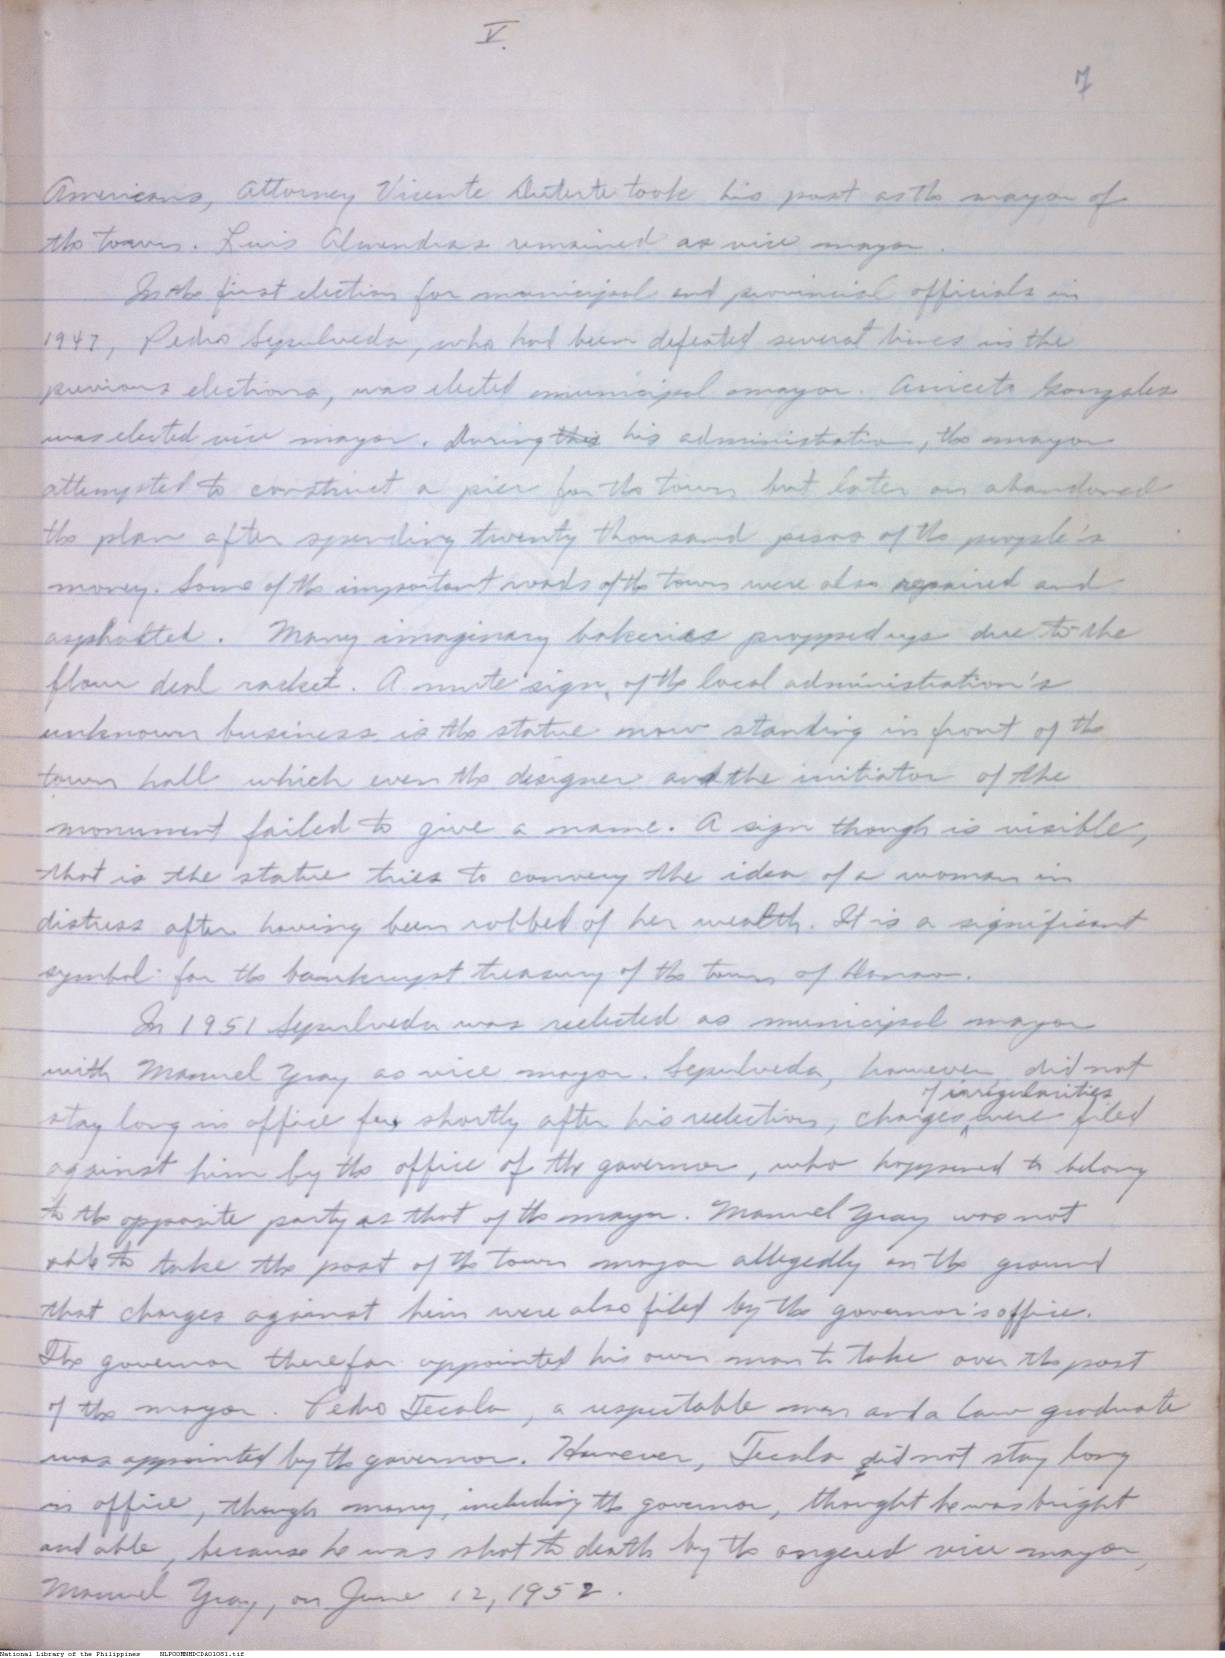 V.
7
Americans, Attorney Vicente Duterte took his post as the mayor of
the town. Luis Almendras remained as vice mayor.
In the first election for municipal and provincial officials in
1947, Pedro Sepulveda, who had been defeated several times in the
previous elections, was elected municipal mayor. Aniceto Gonzales
was elected vice mayor. During this his administration, the mayor
attempted to construct a pier for the town but later on abandoned
the plan after spending twenty thousand pesos of the people's
money. Some of the important roads of the town were also repaired and
asphalted. Many imaginary bakeries propped up due to the
flour deal racket. A mute sign of the local administration's
unknown business is the statue now standing in front of the
town hall which even the designer and the initiator of the
monument failed to give a name. A sign though is visible,
that is the statue tries to convey the idea of a woman in
distress after having been robbed of her wealth. It is a significant
symbol for the bankrupt treasury of the town of Danao.
In 1951 Sepulveda was reelected as municipal mayor
with Manuel Yray as vice mayor. Sepulveda, however did not
stay long in office for shortly after his reelection, charges of irregularities were filed
against him by the office of the governor, who happened to belong
to the opposite party as that of the mayor. Manuel Yray was not
able to take the post of the town mayor allegedly on the ground
that charges against him were also filed by the governor's office.
The governor therefor appointed his own man to take over the post
of the mayor. Pedro Tecala, a respectable man and a law graduate
was appointed by the governor. However, Tecala did not stay long
in office, though many, including the governor, thought he was bright
and able, because he was shot to death by the angered vice mayor,
Manuel Yray, on June 12, 1952.
National Library of the Philippines NLPOORNHDCDA01051.tif